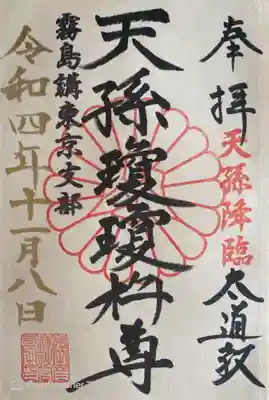 奉拝
天孫降臨
太道教
天孫瓊瓊杵尊
霧島講東京支部
令和四年十一月八日